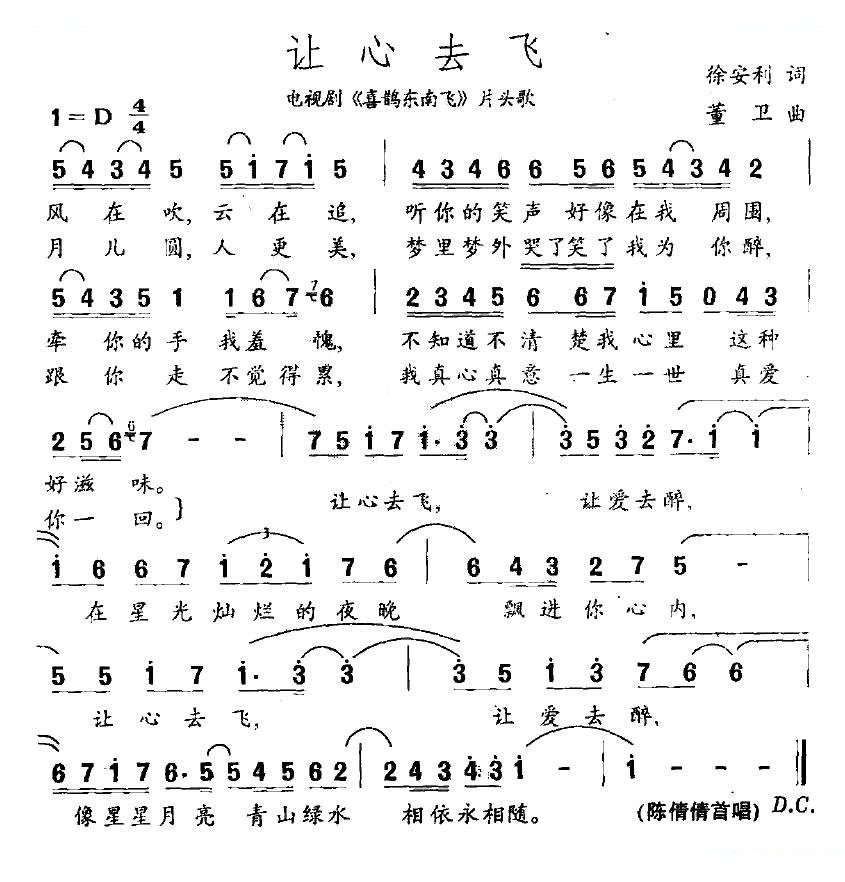 让心去飞
徐安利 词
电视剧《喜鹊东南飞》片头歌
1=D 4/4
董卫曲
5 4 3 4 5 5 i 7 i 5 | 4 3 4 6 6 5 6 5 4 3 4 2 |
风在吹,云在追, 听你的笑声好像在我周围,
月儿圆,人更美, 梦里梦外哭了笑了我为你醉,
5 4 3 5 1 1 6 7 7 6 | 2 3 4 5 6 6 7 i 5 0 4 3
牵你的手我羞愧, 不知道不清楚我心里这种
跟你走不觉得累, 我真心真意一生一世真爱
2 5 6 6 7 - - | 7 5 i 7 i· 3 3 | 3 5 3 2 7· i i
好滋味。
你一回。} 让心去飞, 让爱去醉,
i 6 6 7 i 2 i 7 6 | 6 4 3 2 7 5 -
3
在星光灿烂的夜晚 飘进你心内,
5 5 i 7 i· 3 3 | 3 5 i 3 7 6 6
让心去飞, 让爱去醉,
6 7 i 7 6· 5 5 4 5 6 2 | 2 4 3 4· 3 i - | i - ‖
像星星月亮青山绿水 相依永相随。
(陈倩倩首唱) D.C.